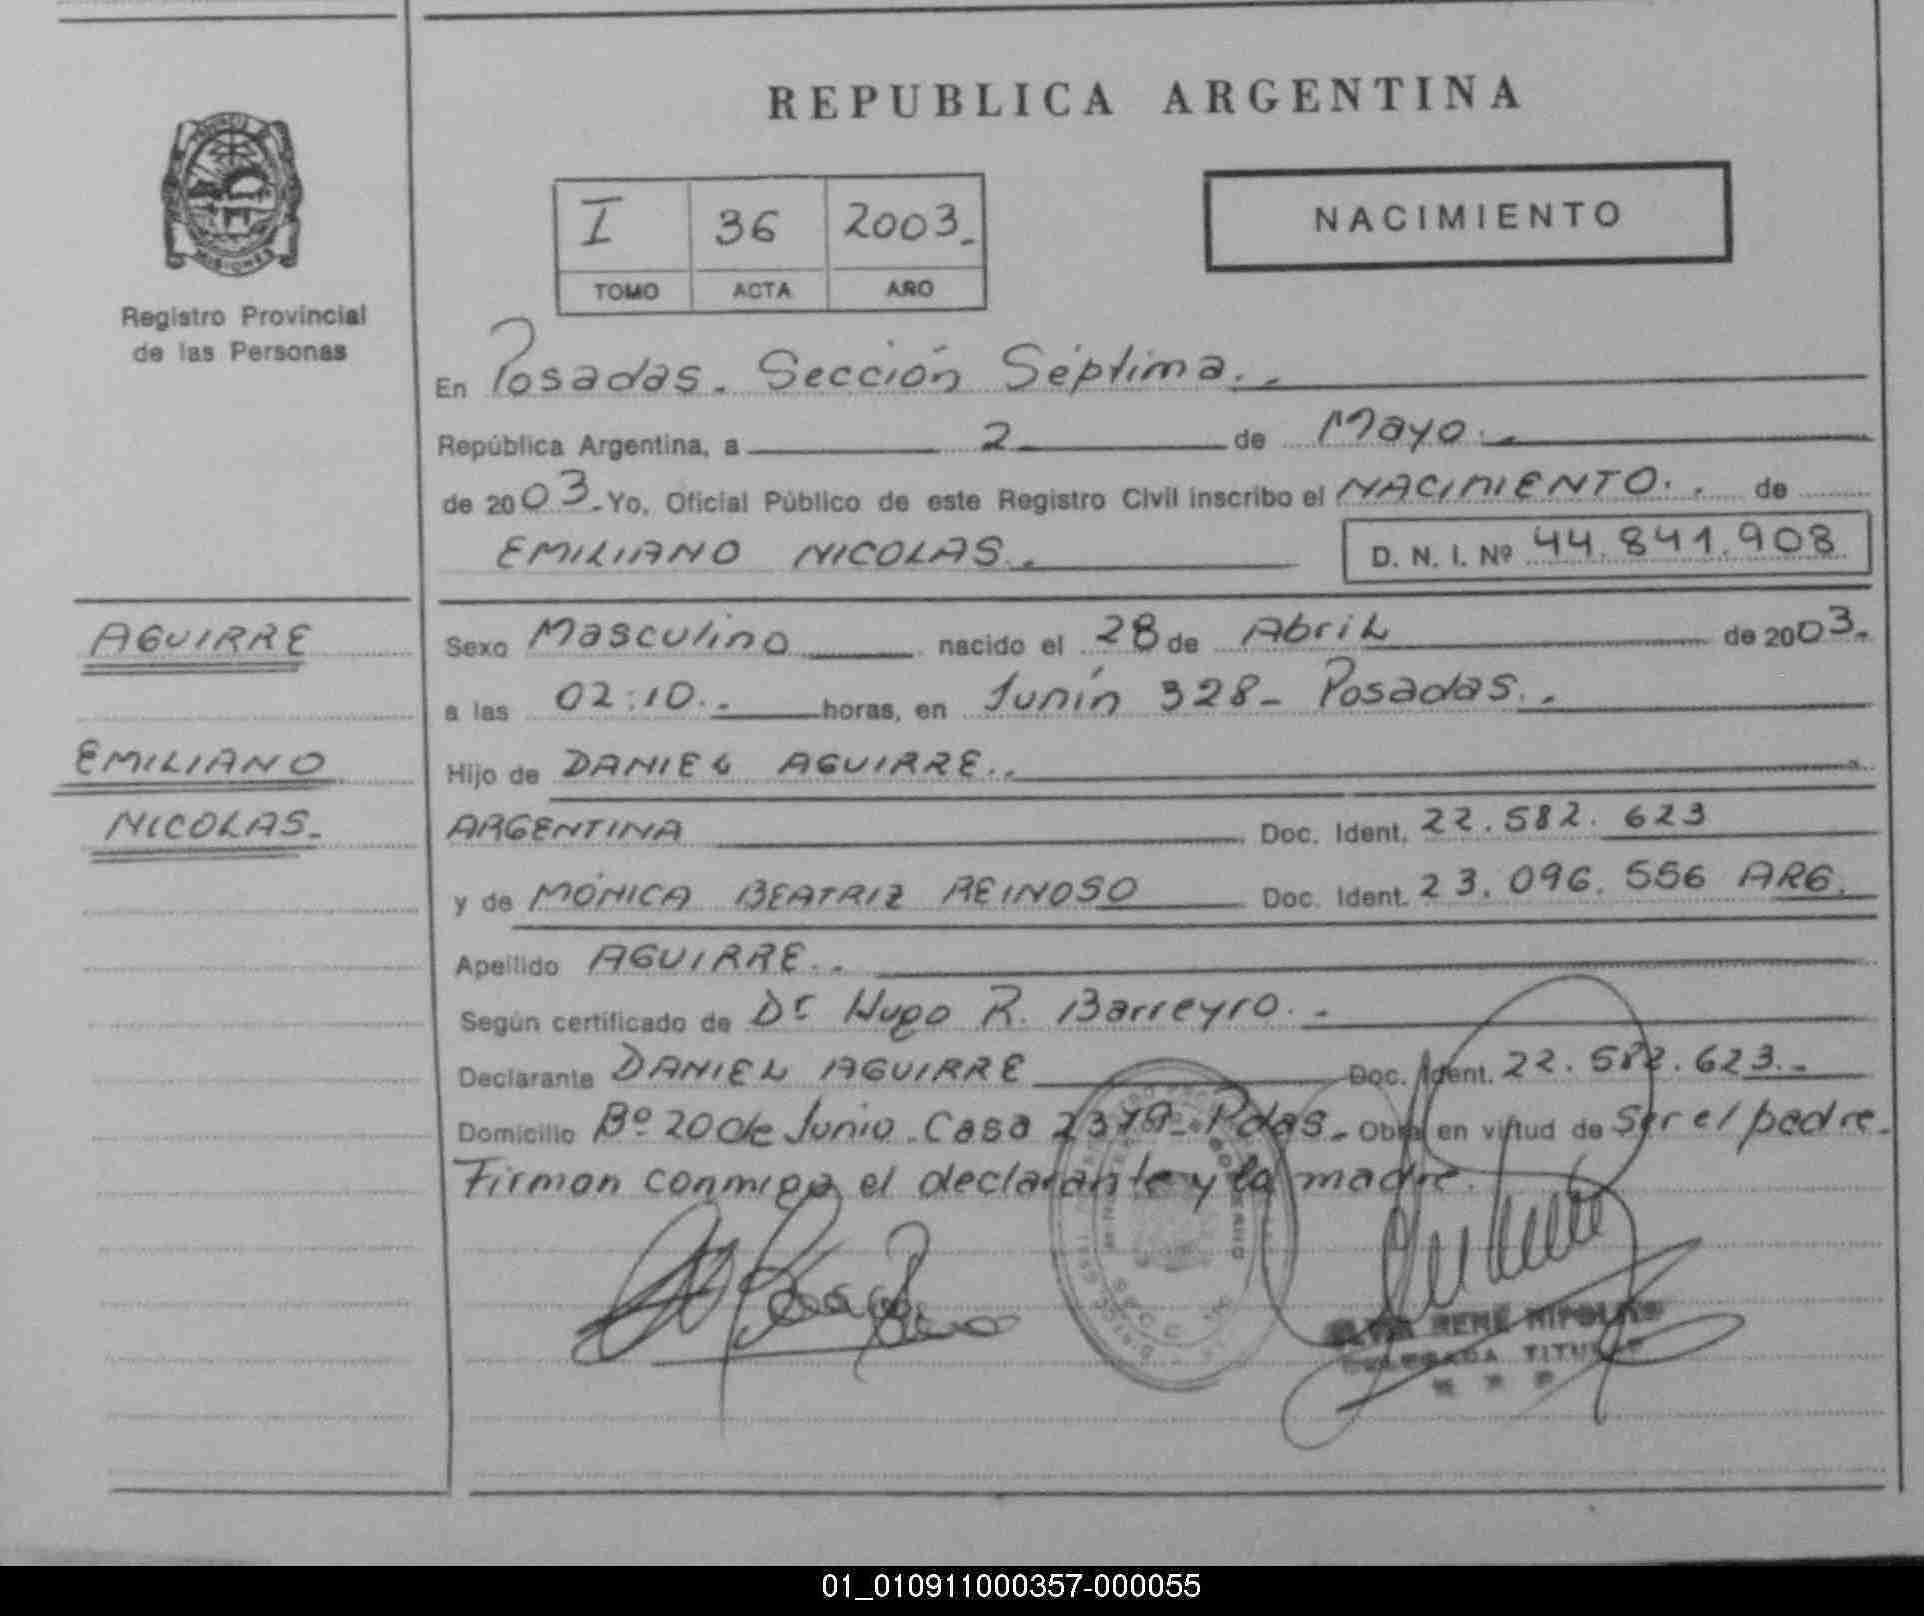 REPUBLICA ARGENTINA
I 36 2003.
TOMO ACTA AÑO
NACIMIENTO
MISIONES
Registro Provincial
de las Personas
En Posadas. Sección Séptima.
República Argentina, a 2 de Mayo.
de 2003. Yo, Oficial Público de este Registro Civil inscribo el NACIMIENTO. de
EMILIANO NICOLAS. D. N. I. Nº 44.841.908
AGUIRRE
EMILIANO
NICOLAS.
Sexo Masculino nacido el 28 de Abril de 2003.
a las 02:10. horas, en Junín 328 - Posadas.
Hijo de DANIEL AGUIRRE.
ARGENTINA Doc. Ident. 22.582.623
y de MÓNICA BEATRIZ REINOSO Doc. Ident. 23.096.556 ARG.
Apellido AGUIRRE.
Según certificado de Dr Hugo R. Barreyro.
Declarante DANIEL AGUIRRE Doc. Ident. 22.582.623.
Domicilio Bº 20 de Junio. Casa Pdas. Obra en virtud de ser el padre.
Firman conmigo el declarante y la madre.
RENÉ
TITULAR
01_010911000357-000055